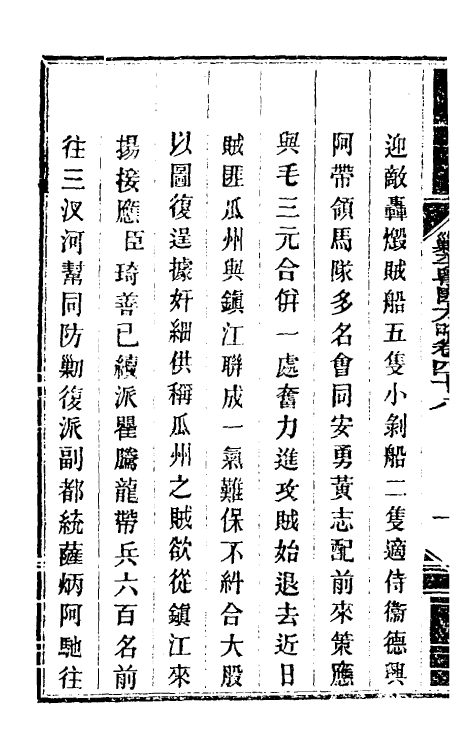 迎敵轟燬賊船五隻小剝船二隻適侍衞德興
阿帶領馬隊多名會同安勇黃志配前來策應
與毛三元合併一處奮力進攻賊始退去近日
賊匪瓜州與鎭江聯成一氣難保不糾合大股
以圖復逞據奸細供稱瓜州之賊欲從鎭江來
揚接應臣琦善已續派瞿騰龍帶兵六百名前
往三汊河幫同防勦復派副都統薩炳阿馳往